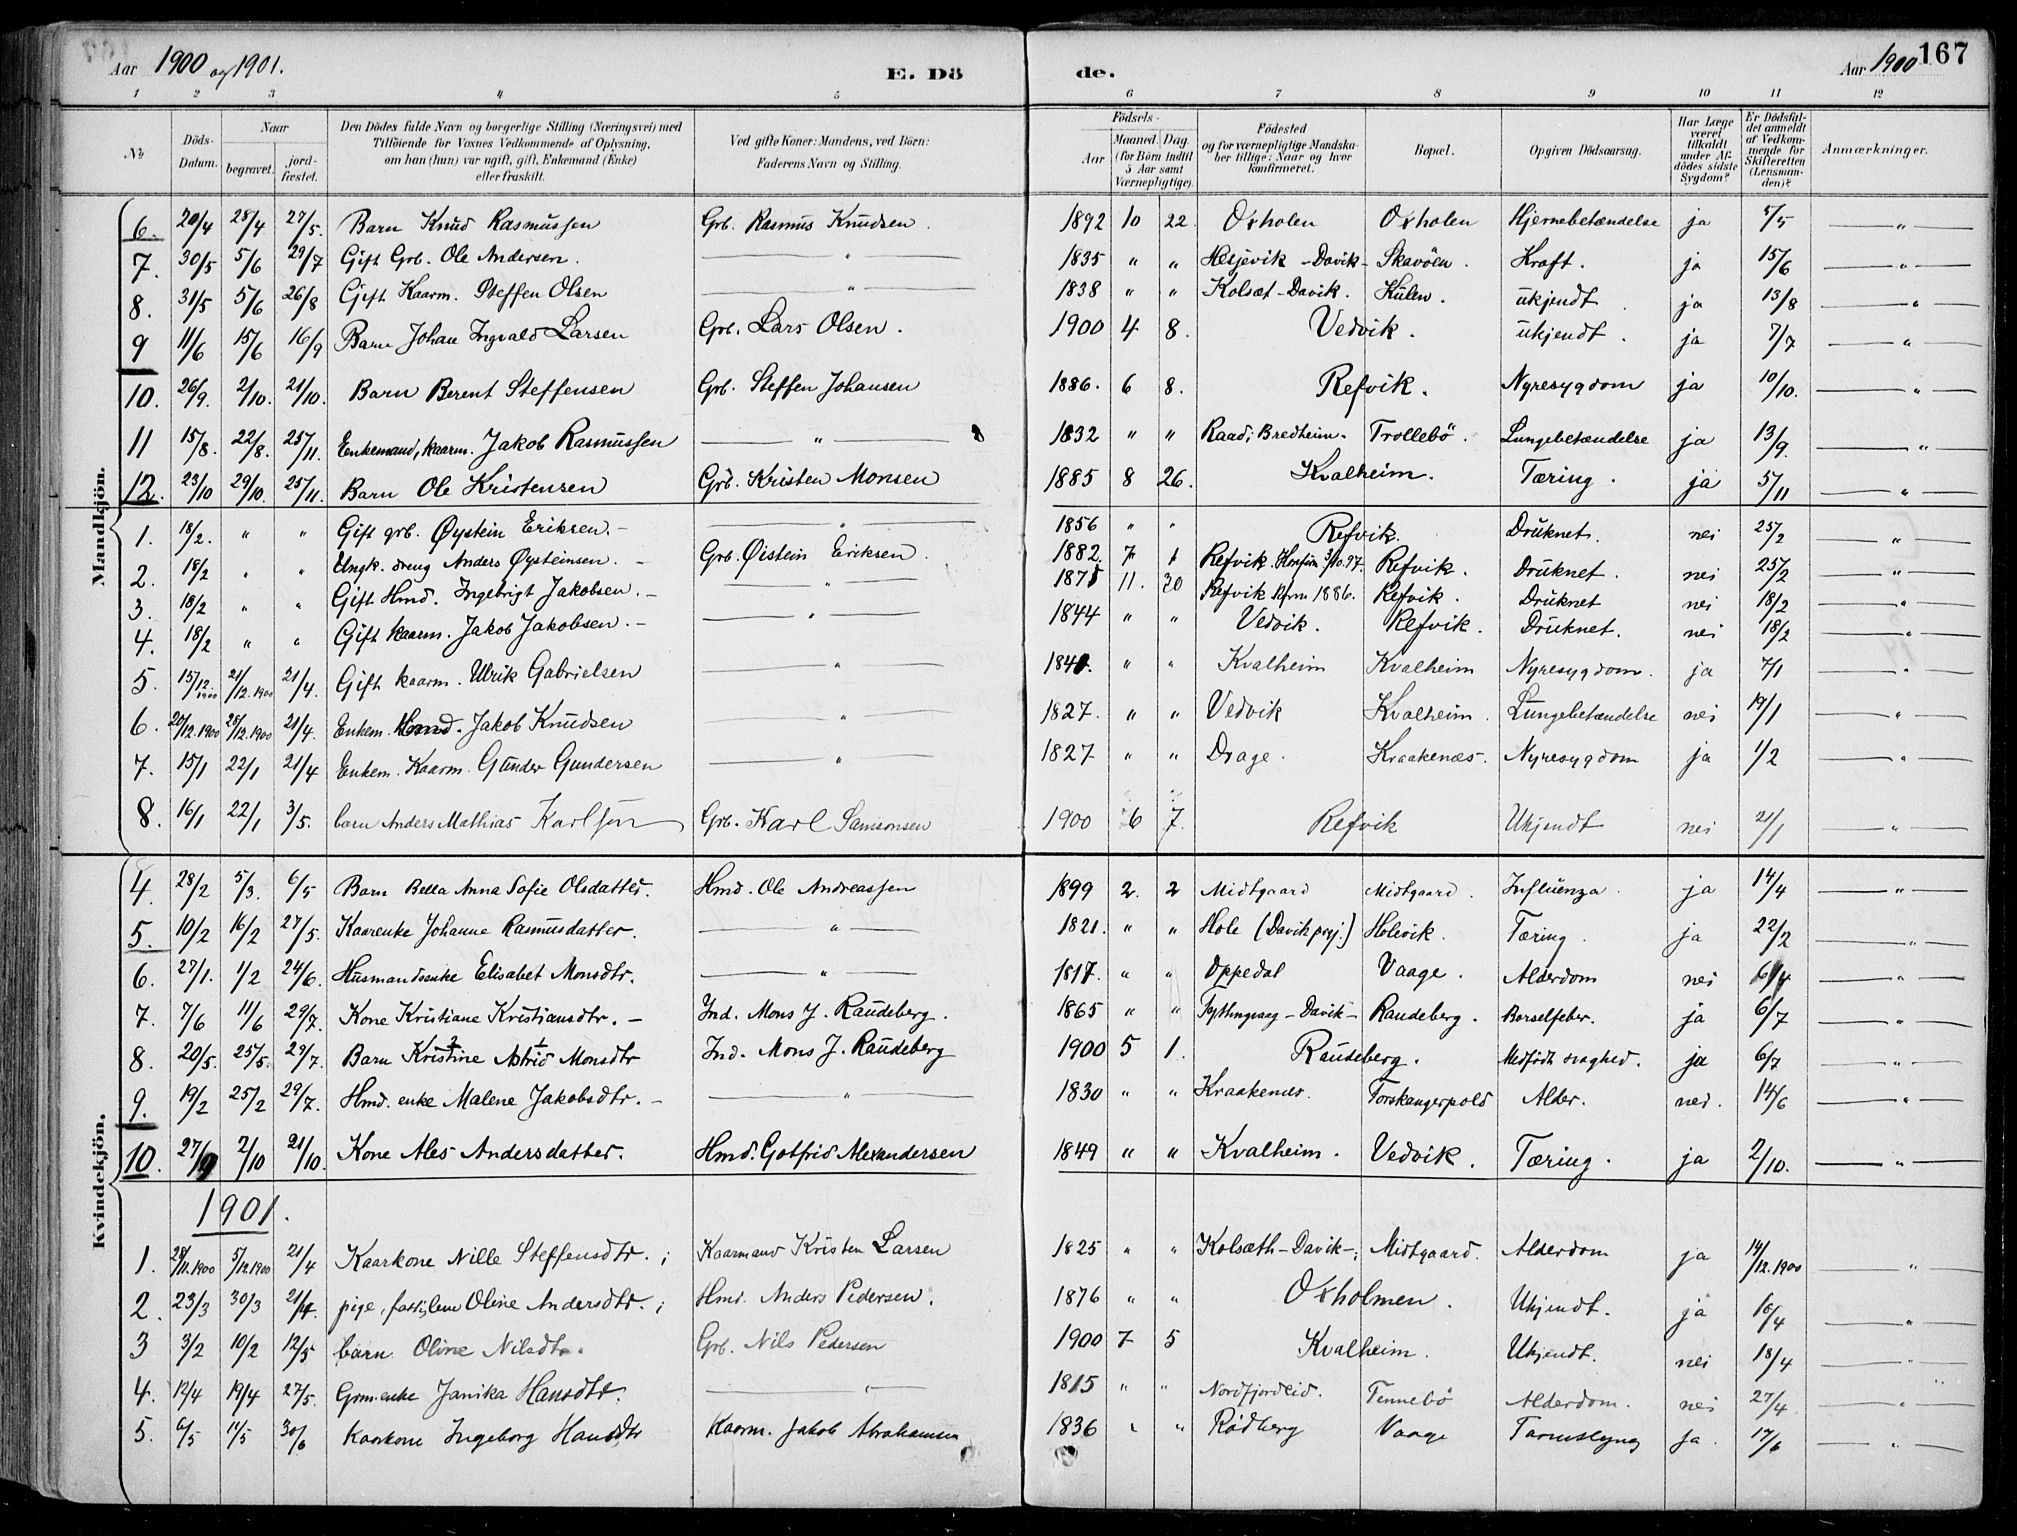 Aar 1900 og 1901. E. Dö de. Aar 1900 167
1 2 3 4 5 6 7 8 9 10 11 12
No Döds-Datum. Naar begravet. jordfæstet. Den Dödes fulde Navn og borgerlige Stilling (Næringsvei) med Tilföiende for Voxnes Vedkommende af Oplysning, om han (hun) var ugift, gift, Enkemand (Enke) eller fraskilt. Ved gifte Koner: Mandens, ved Börn: Faderens Navn og Stilling. Födsels- Aar Maaned. Dag. (for Börn indtil 5 Aar samt Værnepligtige). Födested og for værnepligtige Mandskaber tillige: Naar og hvor konfirmeret. Bopæl. Opgiven Dödsaarsag. Har Læge været tilkaldt under Afdödes sidste Sygdom? Er Dödsfaldet anmeldt af Vedkommende for Skifteretten (Lensmanden)? Anmærkninger.
Mandkjön.
6. 20/4 28/4 27/5. Barn Knud Rasmussen Grb. Rasmus Knudsen. 1892 10 22. Oxholen Oxholen Hjernebetændelse ja 5/5 "
7. 30/5 5/6 29/7 Gift Grb. Ole Andersen. " 1835 " " Hesjevik - Davik - Skavöen. Kræft. ja 15/6 "
8. 31/5 5/6 26/8 Gift Kaarm. Steffen Olsen " 1838 " " Kolsæt - Davik. Kulen. ukjendt. ja 13/8 "
9 11/6 15/6 16/9 Barn Johan Ingvald Larsen Grb. Lars Olsen. 1900 4 8. Vedvik. ukjendt. ja 7/7 "
10. 26/9. 2/10. 21/10. Barn Berent Steffensen Grb. Steffen Johansen 1886. 6 8. Refvik. Nyresygdom ja 10/10. "
11 15/8. 22/8. 25/11. Enkemand, kaarm. Jakob Rasmussen " 1832 " " Raad, Bredheim. Trollebö. Lungebetændelse ja 13/9. "
12. 23/10 29/10. 25/11. Barn Ole Kristensen Grb. Kristen Monsen 1885 8 26. Kvalheim. Tæring. ja 5/11 "
1. 18/2. " " Gift grb. Øystein Eriksen. - " 1856 " " Refvik. Druknet. nei 25/2 "
2. 18/2 " " Ungk. dreng Anders Øysteinsen. - Grb. Øistein Eriksen. 1882 7 1 Refvik. Konfirm 3/10.97. Refvik. Druknet. nei 25/2 "
3. 18/2 " " Gift Hmd. Ingebrigt Jakobsen. - " 1871 11. 30 Refvik Kfrm 1886. Refvik. Druknet nei 18/2 "
4. 18/2 " " Gift kaarm. Jakob Jakobsen. - " 1844 " " Vedvik. Refvik. Druknet. nei 18/2 "
5. 15/12 1900 21/12.1900 21/4. Gift kaarm. Ulrik Gabrielsen " 1840. " " Kvalheim Kvalheim Nyresygdom. ja 7/1 "
6. 20/12.1900 25/12.1900 21/4. Enkem. Hmd. Jakob Knudsen " 1827. " " Vedvik Kvalheim. Lungebetændelse nei 19/1 "
7. 15/1 22/1 21/4 Enkem. Kaarm. Gunder Gundersen " 1827 " " Drage. Kraakenæs. Nyresygdom ja 1/2 "
8. 16/1 22/1 3/5. barn Anders Mathias Karlsen Grb. Karl Samsonsen 1900 6 7. Refvik Ukjendt nei 21/1 "
Kvindekjön.
4. 28/2 5/3. 6/5 Barn Bella Anna Sofie Olsdatter. Hmd. Ole Andreassen 1899 2. 2 Midtgaard Midtgaard. Influenza. ja 14/4 "
5. 10/2 16/2 27/5. Kaarenke Johanne Rasmusdatter. " 1821. " " Hole (Davik prj.) Holevik. Tæring. ja 22/2 "
6. 27/1. 1/2 24/6. Husmandsenke Elisabet Monsdtr. " 1817. " " Oppedal Vaage. Alderdom nei 6/4 "
7. 7/6 11/6 29/7. Kone Kristiane Kristiansdtr. - Ind. Mons J. Raudeberg. 1865 " " Davik - Raudeberg. Barselfeber. ja 6/7 "
8. 20/5. 25/5. 29/7. Barn Kristine Astrid Monsdtr Ind. Mons J. Raudeberg 1900 5 1. Raudeberg. Medfödt svaghed. ja 6/7 "
9. 19/2 25/2 29/7. Hmd. enke Malene Jakobsdtr. - " 1830 " " Kraakenes. Torskangerpold Alder. nei. 14/6 "
10. 27/9 2/10 21/10. Kone Ales Andersdatter. Hmd. Gotfrid Alexandersen 1849 " " Kvalheim. Vedvik. Tæring. ja 2/10. "
1901.
1. 28/11.1900 5/12.1900 21/4 Kaarkone Nille Steffensdtr. ; Kaarmand Kristen Larsen 1825 " " Kolsæth - Davik -; Midtgaard. Alderdom ja 14/12.1900 "
2. 23/3 30/3 21/4. pige, Oline Andersdtr. ; Hmd. Anders Pedersen. 1876 " " Oxholmen. Ukjendt. ja 16/4 "
3 3/2 10/2 12/5 barn Oline Nilsdtr. Grb. Nils Pedersen 1900 7 5 Kvalheim. Ukjendt. nei 18/4 "
4. 12/4 19/4 27/5. Grmenke Janika Hansdtr. " 1815 " " Nordfjordeid. Tennebö Alderdom. nei 27/4. "
5. 6/5 11/5 30/6 Kaarkone Ingeborg Hansdtr Kaarm. Jakob Abrahamsen 1836 " " Rødberg Vaage Tarmslyng ja. 17/6 "